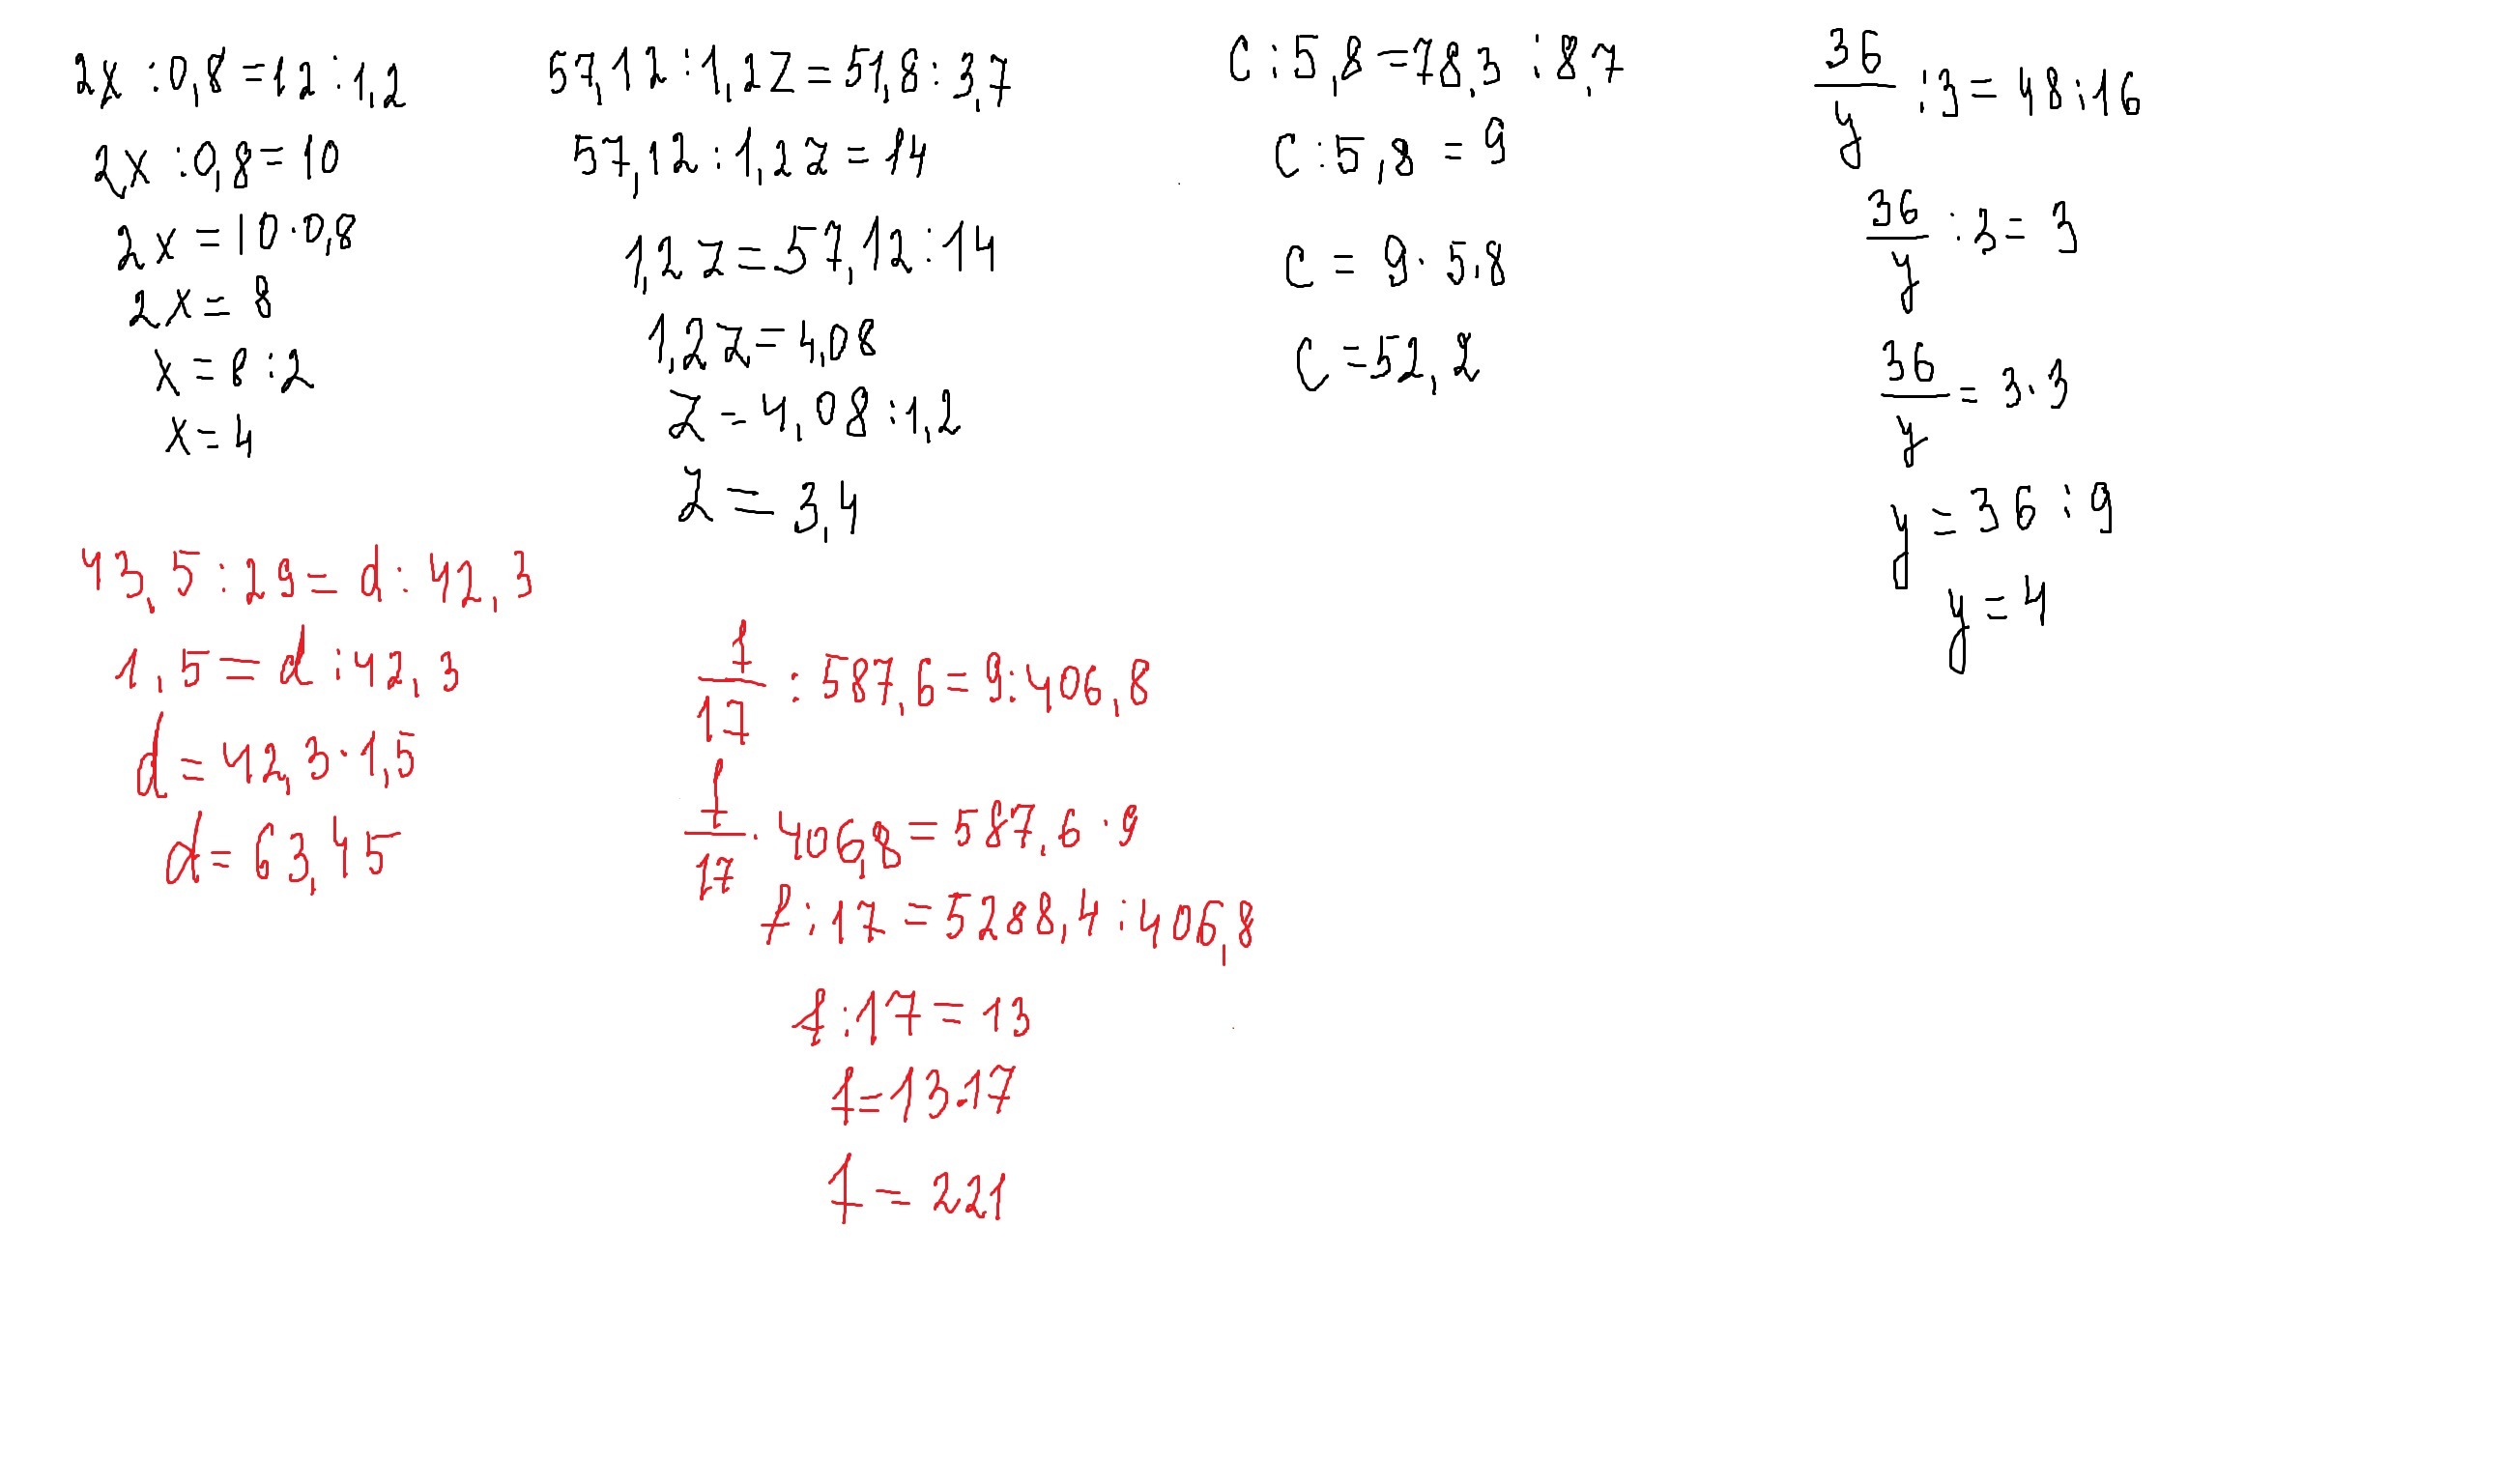 2x:0,8=12:1,2
2x:0,8=10
2x=10·0,8
2x=8
x=8:2
x=4
57,12:1,2z=51,8:3,7
57,12:1,2z=14
1,2z=57,12:14
1,2z=4,08
z=4,08:1,2
z=3,4
c:5,8=78,3:8,7
c:5,8=9
c=9·5,8
c=52,2
36/y:3=48:16
36/y:3=3
36/y=3·3
y=36:9
y=4
43,5:29=d:42,3
1,5=d:42,3
d=42,3·1,5
d=63,45
f/17:587,6=9:406,8
f/17·406,8=587,6·9
f:17=5288,4:406,8
f:17=13
f=13·17
f=221